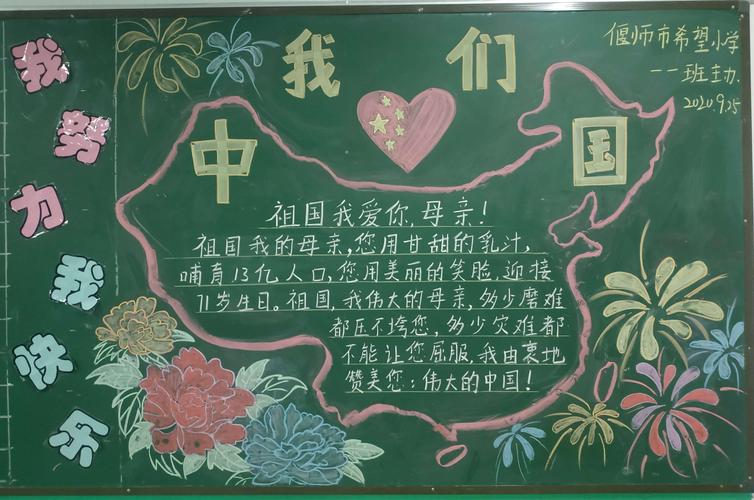 我努力我快乐
我们
中国
偃师市希望小学
一一班主办
2020.9.25
祖国我爱你,母亲!
祖国我的母亲,您用甘甜的乳汁,
哺育13亿人口,您用美丽的笑脸,迎接
71岁生日。祖国,我伟大的母亲,多少磨难
都压不垮您,多少灾难都
不能让您屈服.我由衷地
赞美您:伟大的中国!